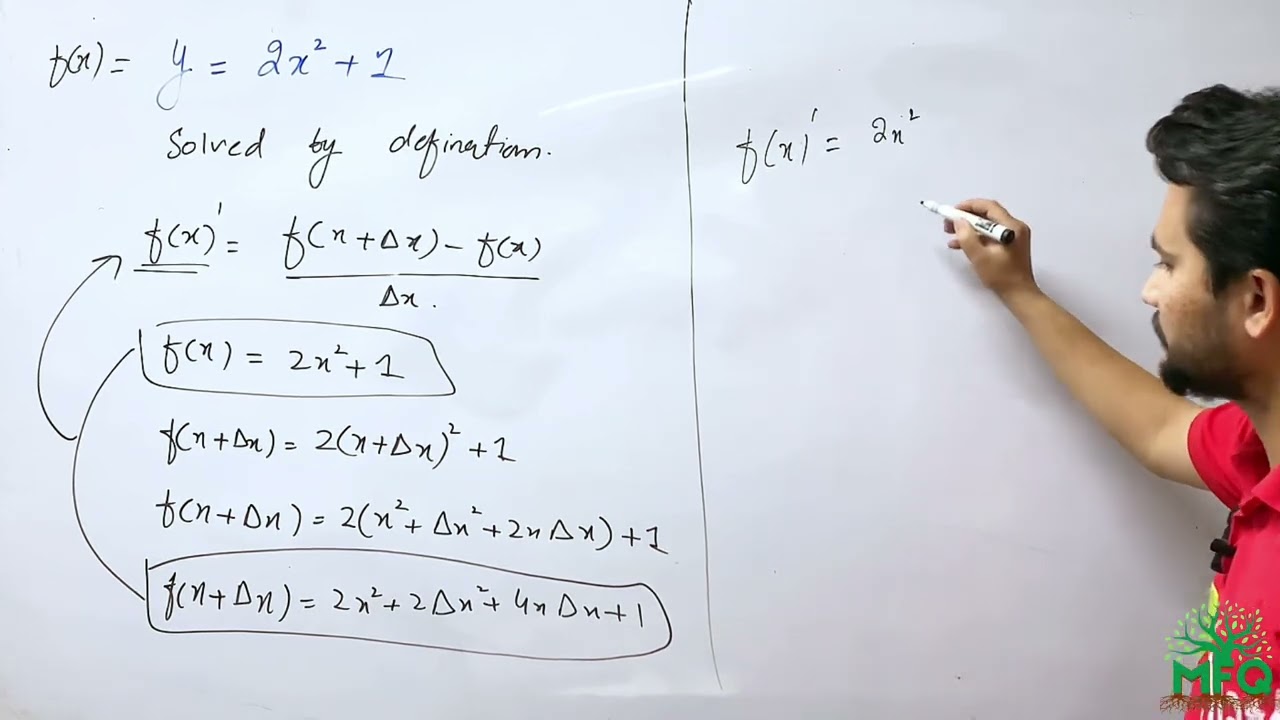 f(x) = y = 2x² + 1
Solved by defination.
f(x)' = f(x+Δx) - f(x)
Δx .
f(x) = 2x² + 1
f(x+Δx) = 2(x+Δx)² + 1
f(x+Δx) = 2(x² + Δx² + 2xΔx) + 1
f(x+Δx) = 2x² + 2Δx² + 4xΔx + 1
f(x)' = 2x²
MFQ